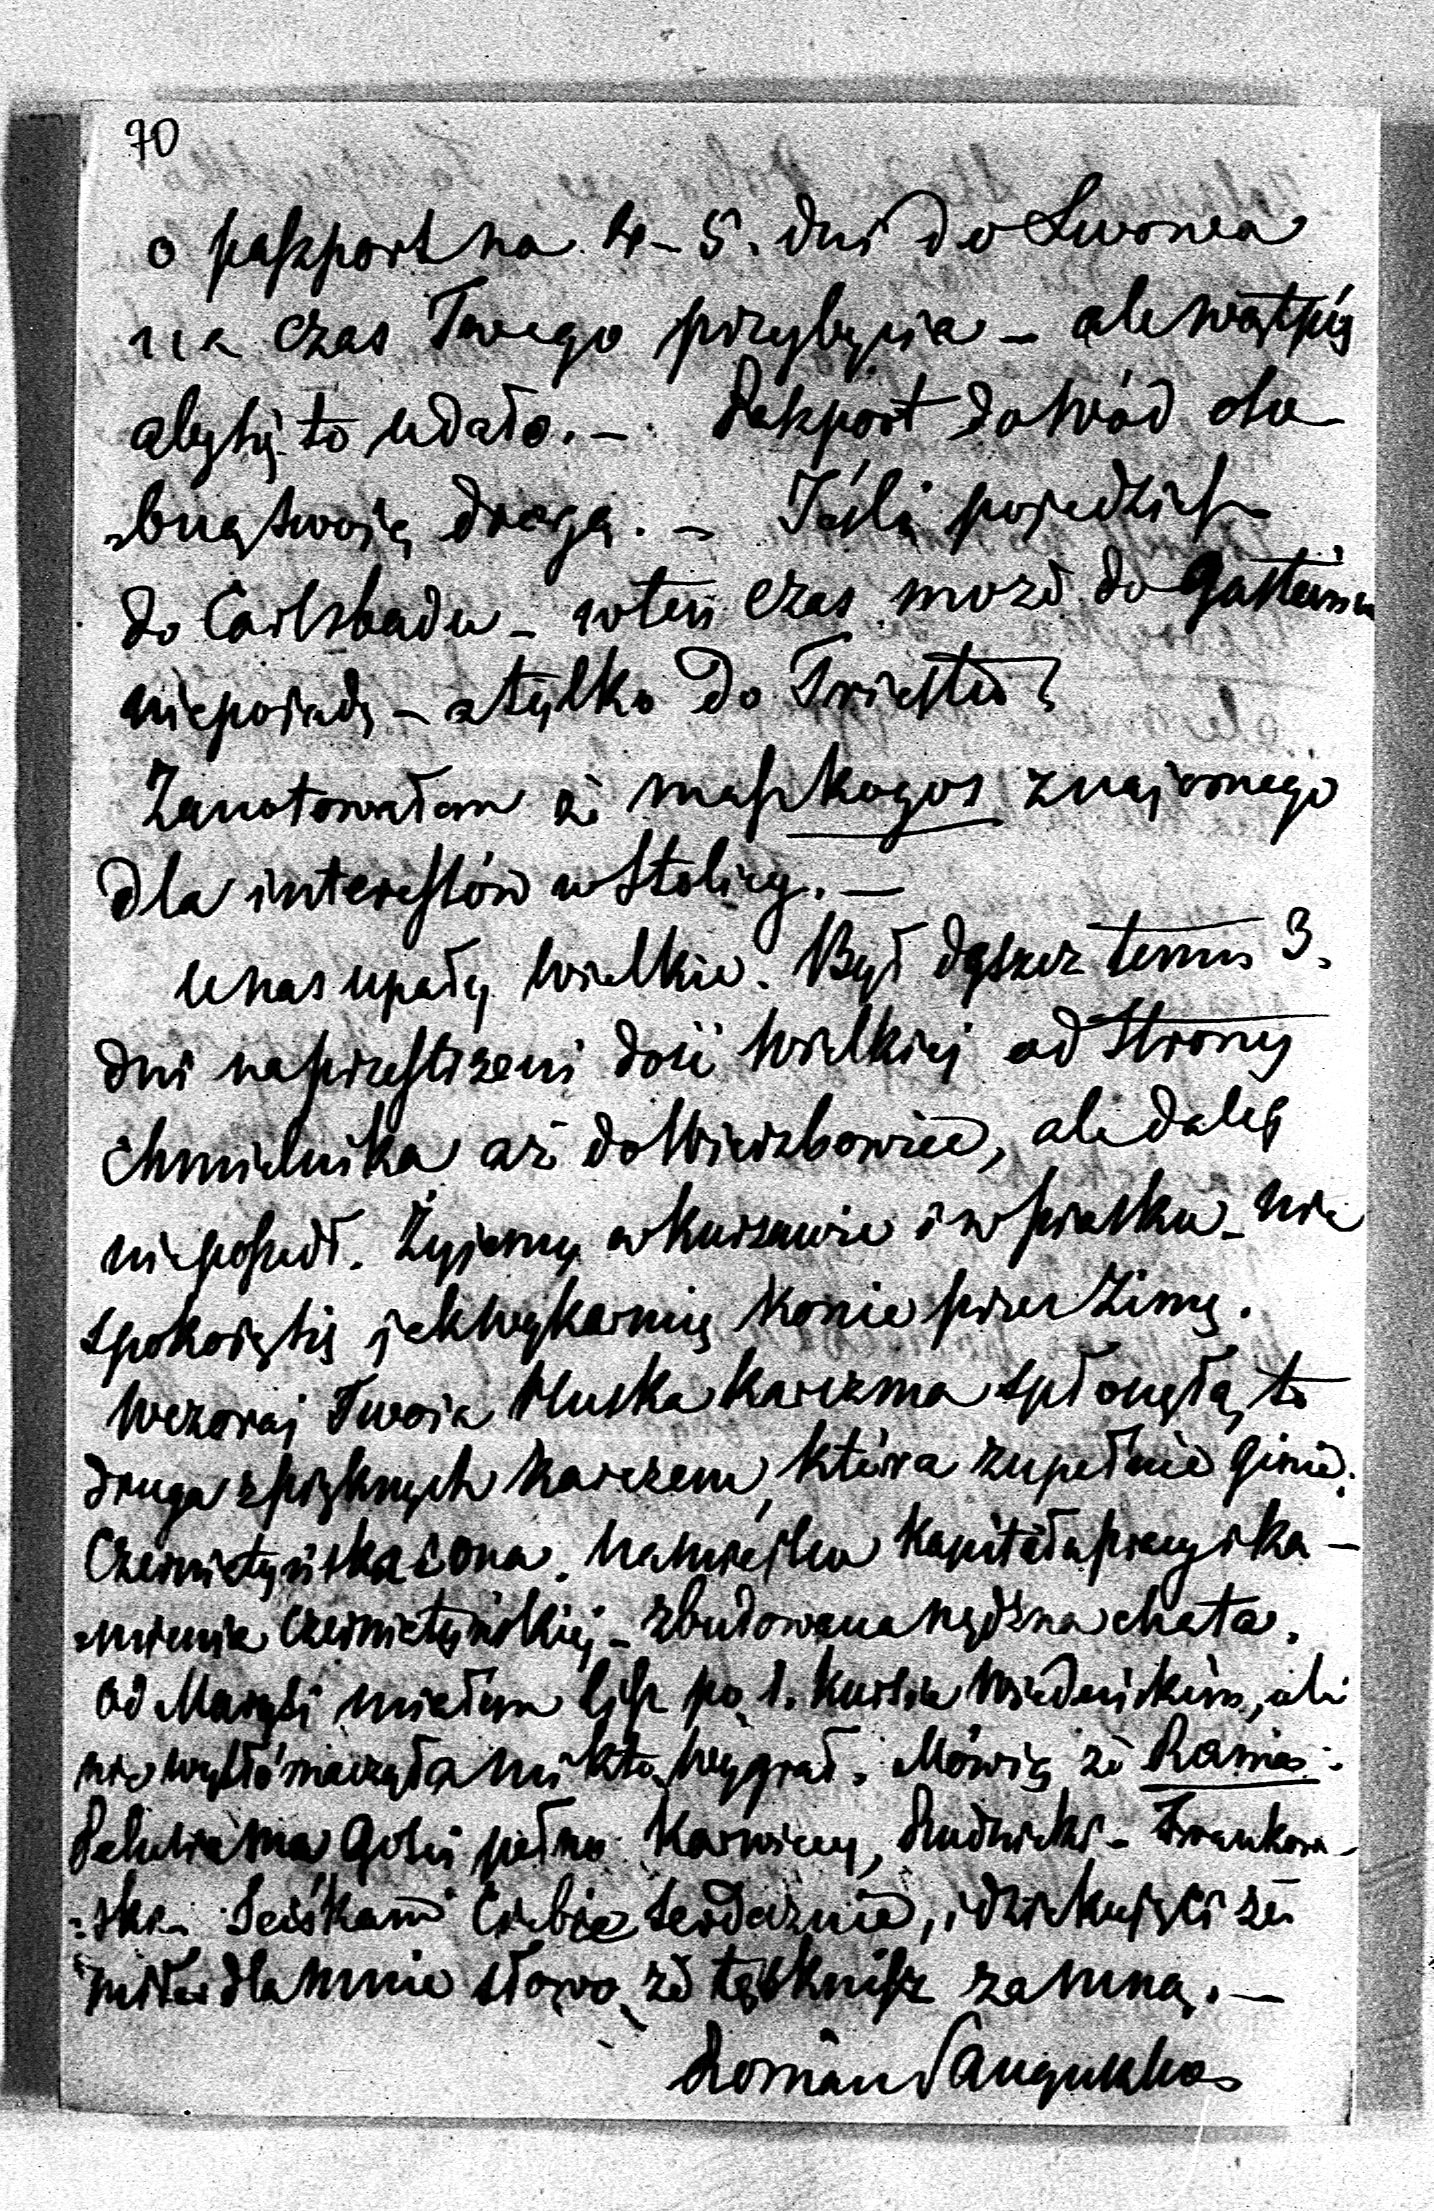 70
o paszport na 4-5. dni do Lwowa
na czas Twego przybycia - ale wątpię
aby się to udało. - Paszport dotąd oso-
=bną swoją drogą. - Jeśli pojedziesz
do Carlsbadu - wten czas może do Gasteinu
niepojadę - a tylko do Triestu?
Zanotowałem że masz kogoś znajomego
dla interessów w Stolicy. -
U nas upały wielkie. Był deszcz temu 3.
dni na przestrzeni dość wielkiej od strony
Chmielnika aż do Wierzbowiec, ale dalej
nieposzedł. Żyjemy w kurzawie i w piasku - nie
spokoję się jak wykarmię konie przez Zimę.
Wczoraj Twoja karczma spłonęła, to
druga z pięknych karczem, która zupełnie ginie.
Czerniatyńska i ona. Na miejscu kapitała pracy i ka-
=mienia Czerniatyńskiej - zbudowana nędzna chata.
Od Marysi miałem list po 1. kursie Wiedeńskim, ale
nie wytłómaczyła mi kto wygrał. Mówią że
ma Gości pełno Karwiccy, Rudnicki -
=ski. Ściskam Ciebie serdecznie, i dziękuję Ci za
miłe dla mnie słowo że tęsknisz za mną. -
Roman Sanguszko